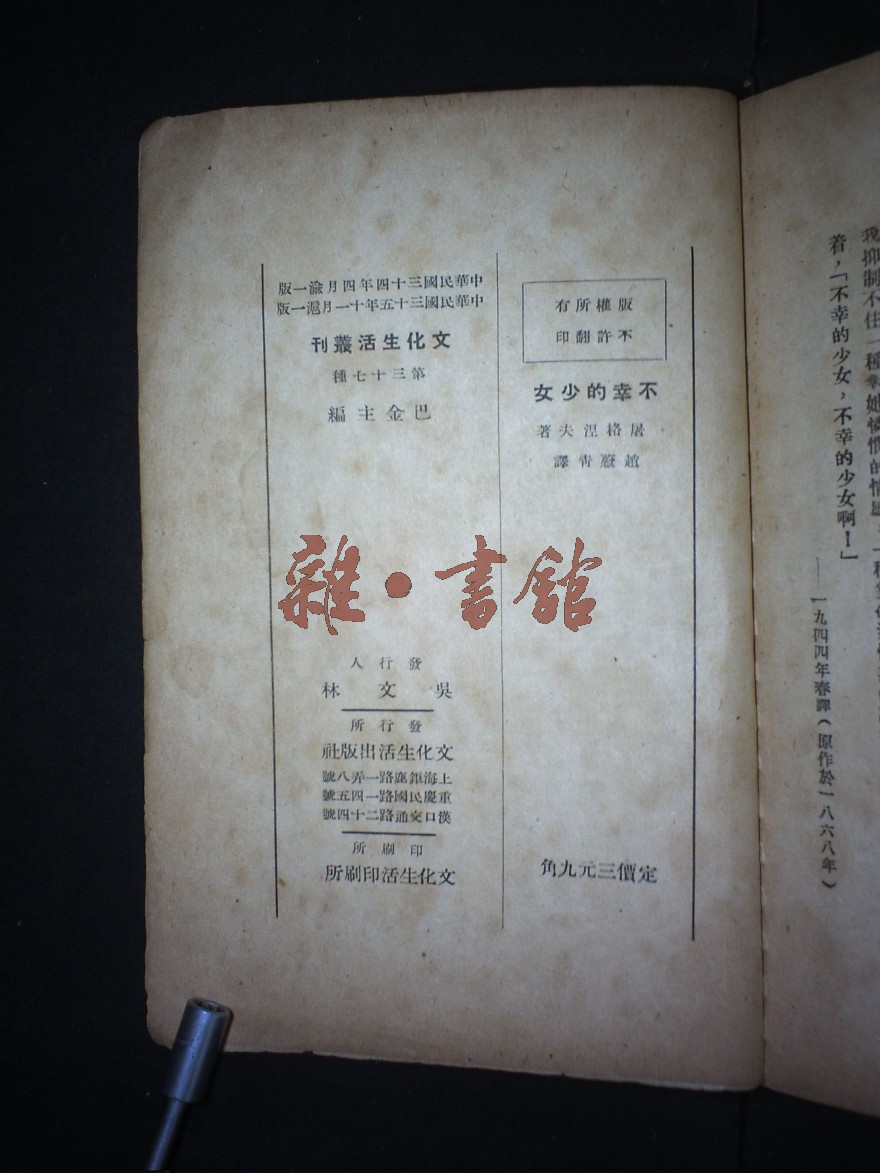 我抑制不住一種對她憐憫的情感
着，「不幸的少女，不幸的少女啊！」
——一九四四年春譯（原作於一八六八年）
版權所有
不許翻印
不幸的少女
屠格涅夫著
趙蔚青譯
定價三元九角
中華民國三十四年四月渝一版
中華民國三十五年十一月滬一版
文化生活叢刊
第三十七種
巴金主編
雜·書館
發行人
吳文林
發行所
文化生活出版社
上海鉅鹿路一弄八號
重慶民國路一四五號
漢口交通路二十四號
印刷所
文化生活印刷所